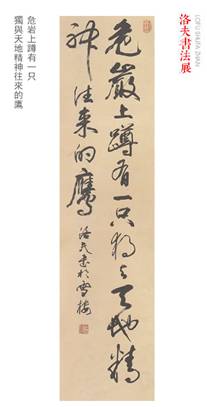 洛夫書法展
LOFU SHUFA ZHAN
危岩上蹲有一只
獨與天地精神往來的鷹
危巖上蹲有一只獨與天地精
神往来的鷹
洛夫書於雪樓